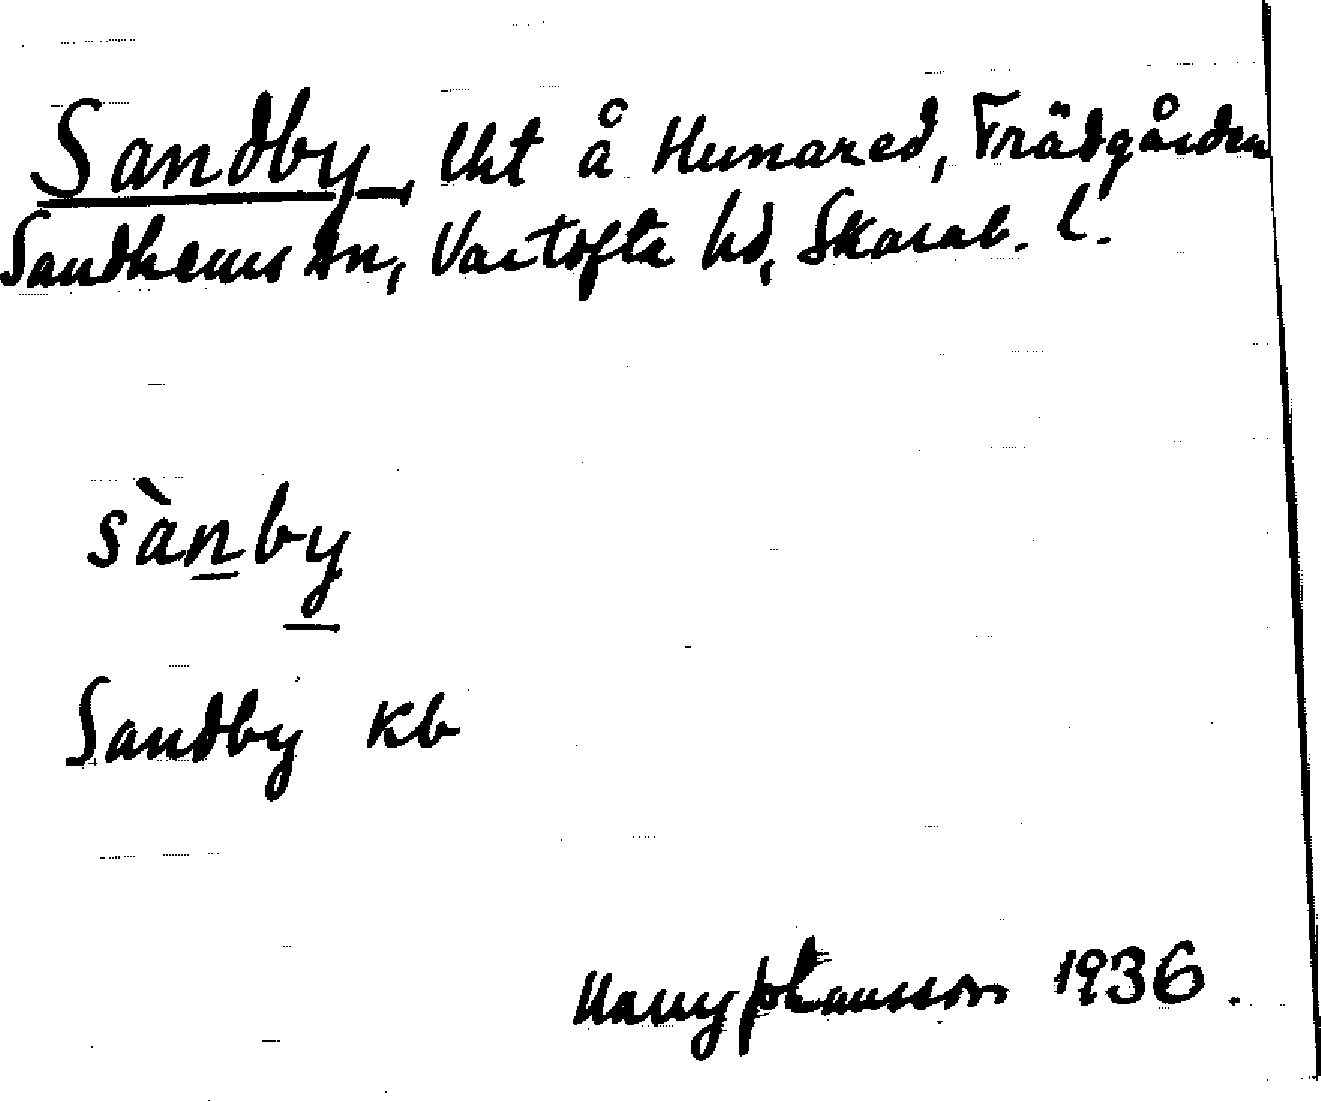 Sandby, lht å Hunared, Trädgården
Sandhems sn, Vartofta hd, Skarab. l.
sànby
Sandby kb
Harry Johansson 1936.